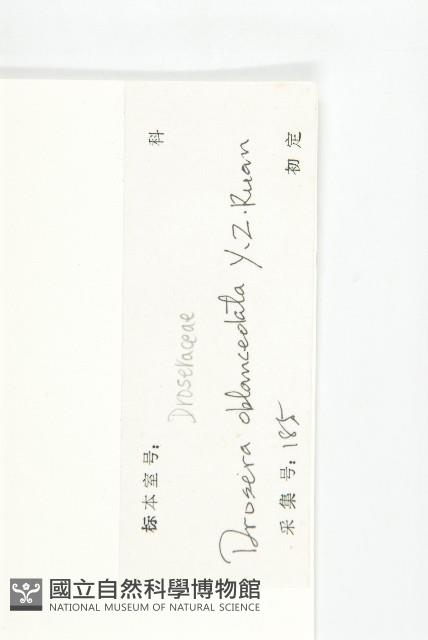 标本室号: 科
Droseraceae
Drosera oblanceolata Y.Z.Ruan
采集号: 185 初定
國立自然科學博物館
NATIONAL MUSEUM OF NATURAL SCIENCE